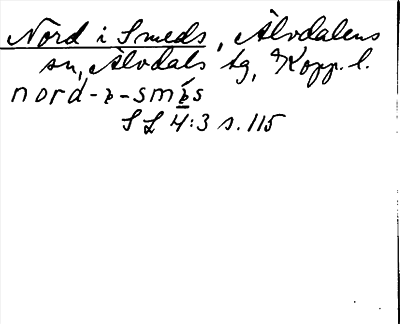 Nord i Smeds, Älvdalens
sn, Älvdals tg, Kopp. l.
nord-
S L 4:3 s. 115